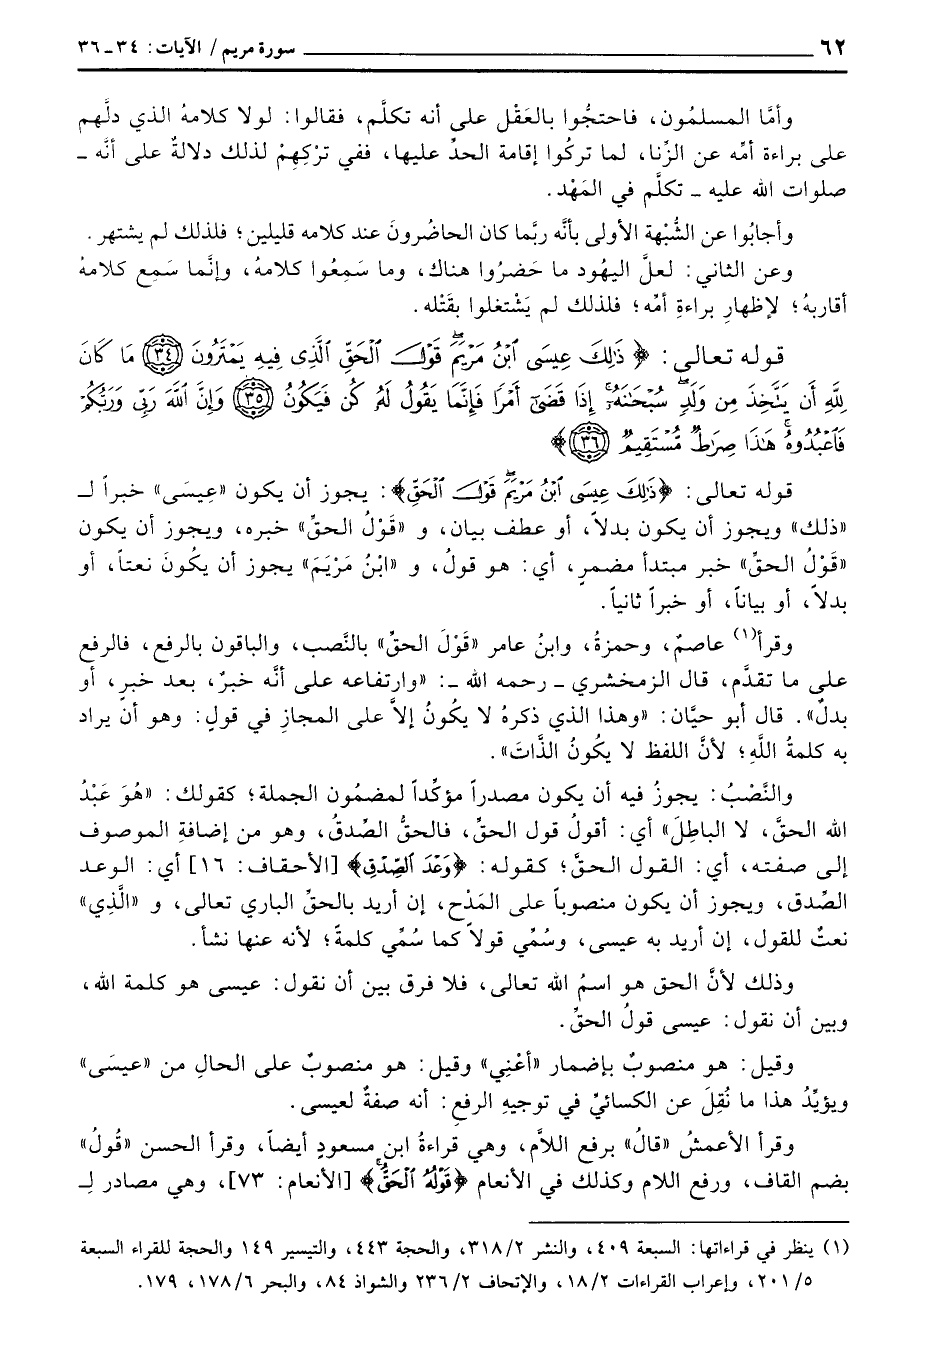 ٦٢ سورة مريم / الآيات: ٣٤ـ٣٦
وأمَّا المسلمُون، فاحتجُّوا بالعَقْل على أنه تكلَّم، فقالوا: لولا كلامهُ الذي دلَّهم
على براءة أمِّه عن الزِّنا، لما تركُوا إقامة الحدِّ عليها، ففي تركِهِمْ لذلك دلالةٌ على أنَّه ـ
صلوات الله عليه ـ تكلَّم في المَهْد.
وأجابُوا عن الشُّبهة الأولى بأنَّه ربَّما كان الحاضُرونَ عند كلامه قليلين؛ فلذلك لم يشتهر.
وعن الثاني: لعلَّ اليهُود ما حَضرُوا هناك، وما سَمِعُوا كلامهُ، وإنَّما سَمِع كلامهُ
أقاربهُ؛ لإظهارِ براءةِ أمِّه؛ فلذلك لم يَشْتغلوا بقَتْله.
قوله تعالى: ﴿ ذَٰلِكَ عِيسَى ٱبْنُ مَرْيَمَ ۖ قَوْلَ ٱلْحَقِّ ٱلَّذِى فِيهِ يَمْتَرُونَ ﴿٣٤﴾ مَا كَانَ
لِلَّهِ أَن يَتَّخِذَ مِن وَلَدٍ ۖ سُبْحَٰنَهُۥٓ ۚ إِذَا قَضَىٰٓ أَمْرًا فَإِنَّمَا يَقُولُ لَهُۥ كُن فَيَكُونُ ﴿٣٥﴾ وَإِنَّ ٱللَّهَ رَبِّى وَرَبُّكُمْ
فَٱعْبُدُوهُ ۚ هَٰذَا صِرَٰطٌ مُّسْتَقِيمٌ ﴿٣٦﴾ ﴾
قوله تعالى: ﴿ذَٰلِكَ عِيسَى ٱبْنُ مَرْيَمَ ۖ قَوْلَ ٱلْحَقِّ﴾: يجوز أن يكون «عِيسَى» خبراً لـ
«ذلك» ويجوز أن يكون بدلاً، أو عطف بيان، و «قَوْلُ الحقِّ» خبره، ويجوز أن يكون
«قَوْلُ الحقِّ» خبر مبتدأ مضمرٍ، أي: هو قولُ، و «ابْنُ مَرْيَمَ» يجوز أن يكُونَ نعتاً، أو
بدلاً، أو بياناً، أو خبراً ثانياً.
وقرأ(١) عاصمٌ، وحمزةُ، وابنُ عامر «قَوْلَ الحقِّ» بالنَّصب، والباقون بالرفع، فالرفع
على ما تقدَّم، قال الزمخشري ـ رحمه الله ـ: «وارتفاعه على أنَّه خبرٌ، بعد خبرٍ، أو
بدلٌ». قال أبو حيَّان: «وهذا الذي ذكرهُ لا يكُونُ إلاَّ على المجازِ في قولٍ: وهو أن يراد
به كلمةُ اللَّهِ؛ لأنَّ اللفظ لا يكُونُ الذَّاتَ».
والنَّصْبُ: يجوزُ فيه أن يكون مصدراً مؤكِّداً لمضمُون الجملة؛ كقولك: «هُوَ عَبْدُ
الله الحقَّ، لا الباطِلَ» أي: أقولُ قول الحقِّ، فالحقُّ الصِّدقُ، وهو من إضافةِ الموصوف
إلى صفته، أي: القول الحقَّ؛ كقوله: ﴿وَعْدَ ٱلصِّدْقِ﴾ [الأحقاف: ١٦] أي: الوعد
الصِّدق، ويجوز أن يكون منصوباً على المَدْحِ، إن أريد بالحقِّ الباري تعالى، و «الَّذِي»
نعتٌ للقول، إن أريد به عيسى، وسُمِّي قولاً كما سُمِّي كلمةً؛ لأنه عنها نشأ.
وذلك لأنَّ الحق هو اسمُ الله تعالى، فلا فرق بين أن نقول: عيسى هو كلمة الله،
وبين أن نقول: عيسى قولُ الحقِّ.
وقيل: هو منصوبٌ بإضمار «أعْنِي» وقيل: هو منصوبٌ على الحالِ من «عيسَى»
ويؤيِّدُ هذا ما نُقِلَ عن الكسائيِّ في توجيهِ الرفع: أنه صفةٌ لعيسى.
وقرأ الأعمشُ «قالُ» برفع اللاَّم، وهي قراءةُ ابن مسعودٍ أيضاً، وقرأ الحسن «قُولُ»
بضم القاف، ورفع اللام وكذلك في الأنعام ﴿قَوْلُهُ ٱلْحَقُّ﴾ [الأنعام: ٧٣]، وهي مصادر لِـ
(١) ينظر في قراءاتها: السبعة ٤٠٩، والنشر ٣١٨/٢، والحجة ٤٤٣، والتيسير ١٤٩ والحجة للقراء السبعة
٢٠١/٥، وإعراب القراءات ١٨/٢، والإتحاف ٢٣٦/٢ والشواذ ٨٤، والبحر ١٧٨/٦، ١٧٩.